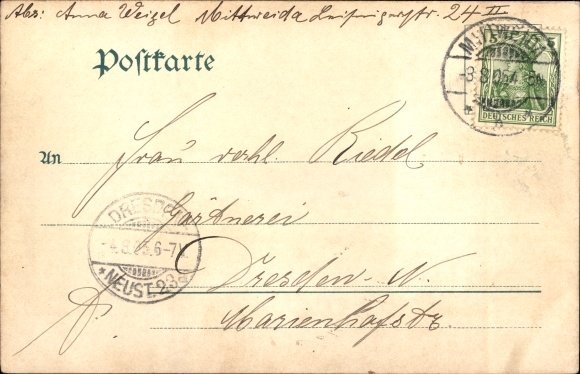 Abs: Anna Weigel Mittweida Leipzigerstr. 24 II
Postkarte
MITTWEIDA
-3.8.05.
DEUTSCHES REICH
An Frau verh. Riedel
Gärtnerei
DRESDEN
-4.8.05.6-7V.
* NEUST. 23
Dresden-N.
Marienhofstr.